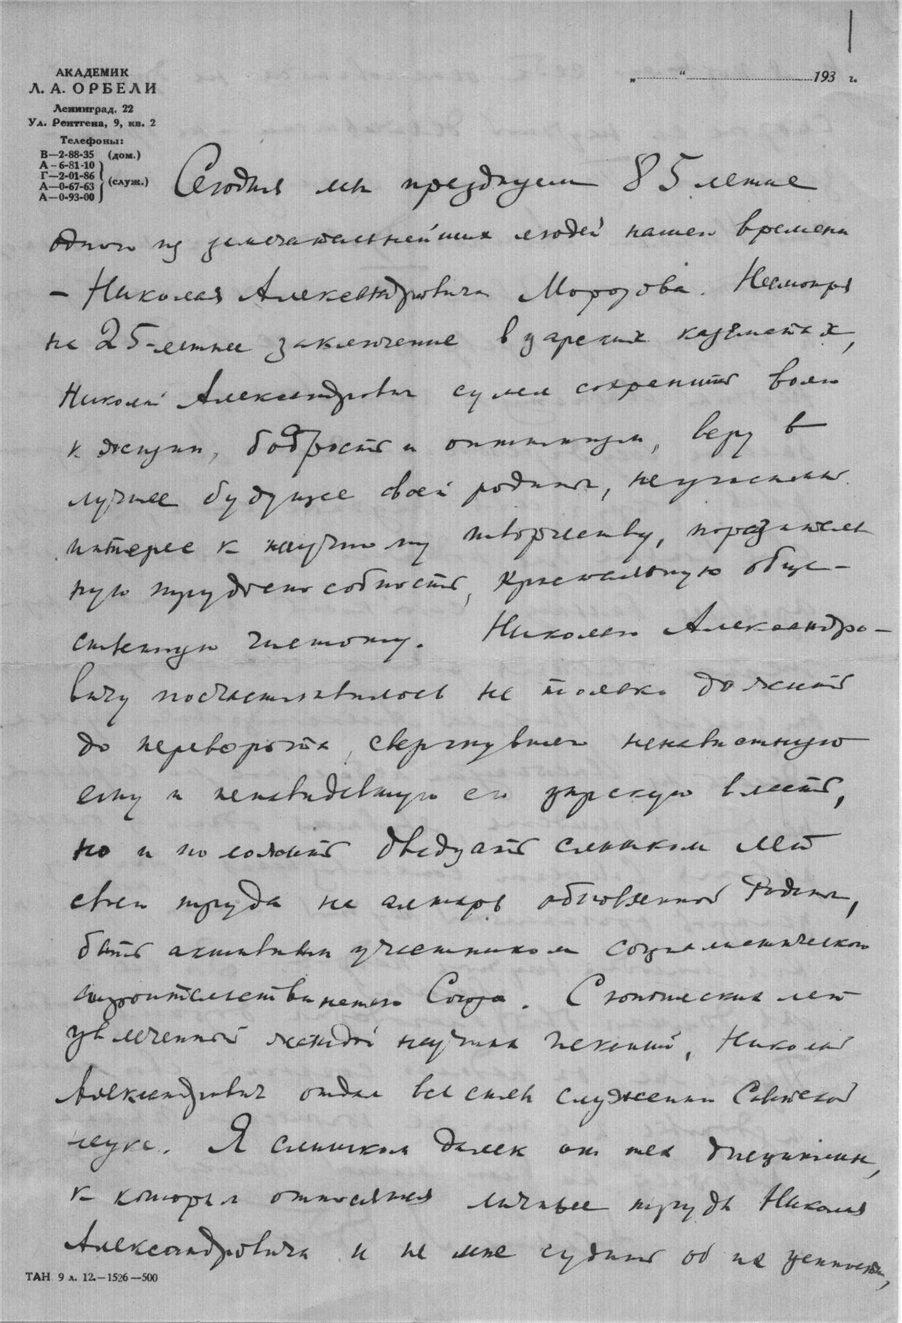 АКАДЕМИК
Л. А. ОРБЕЛИ
Ленинград, 22
Ул. Рентгена, 9, кв. 2
Телефоны:
В—2-88-35 (дом.)
А—6-81-10
Г—2-01-86
А—0-67-63
А—0-93-00
(служ.)
„ “ 193 г.
Сегодня мы празднуем 85 летие
одного из замечательнейших людей нашего времени
– Николая Александровича Морозова. Несмотря
на 25-летнее заключение в царских казематах,
Николай Александрович сумел сохранить волю
к жизни, бодрость и оптимизм, веру в
лучшее будущее своей родины, неугасимый
интерес к научному творчеству, поразитель
ную трудоспособность, кристальную обще–
ственную чистоту. Николаю Александро–
вичу посчастливилось не только дожить
до переворота, свергнувшего ненавистную
ему и ненавидевшую его царскую власть,
но и положить двадцать слишком лет
своего труда на алтарь обновленной Родины,
быть активным участником социалистического
строительства нашего Союза. С юношеских лет
увлеченный жаждой научных исканий, Николай
Александрович отдал все силы служению Советской
науке. Я слишком далек от тех дисциплин,
к которым относятся личные труды Николая
Александровича и не мне судить об их ценности,
ТАН 9 л. 12.—1526—500